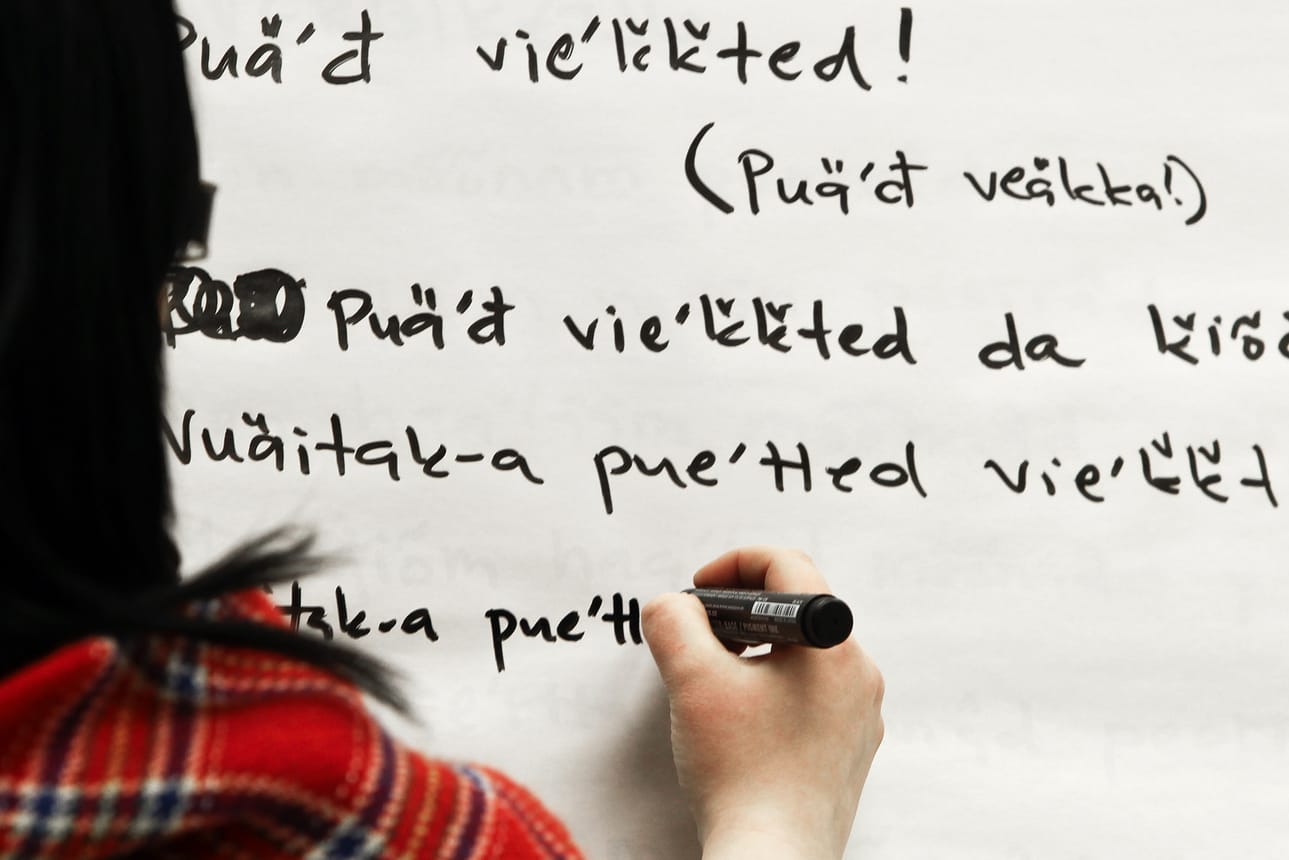 Puäʹđ vieʹǩǩted!
(Puäʹđ veäkka!)
Puäʹđ vieʹǩǩted da ǩiõ
Vuäitak-a pueʹtted vieʹǩǩt
tak-a pueʹtt